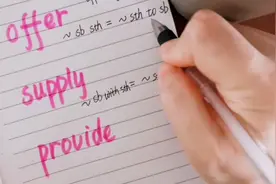 offer
~ sb sth = ~ sth to sb
supply
~ sb with sth = ~ s
provide